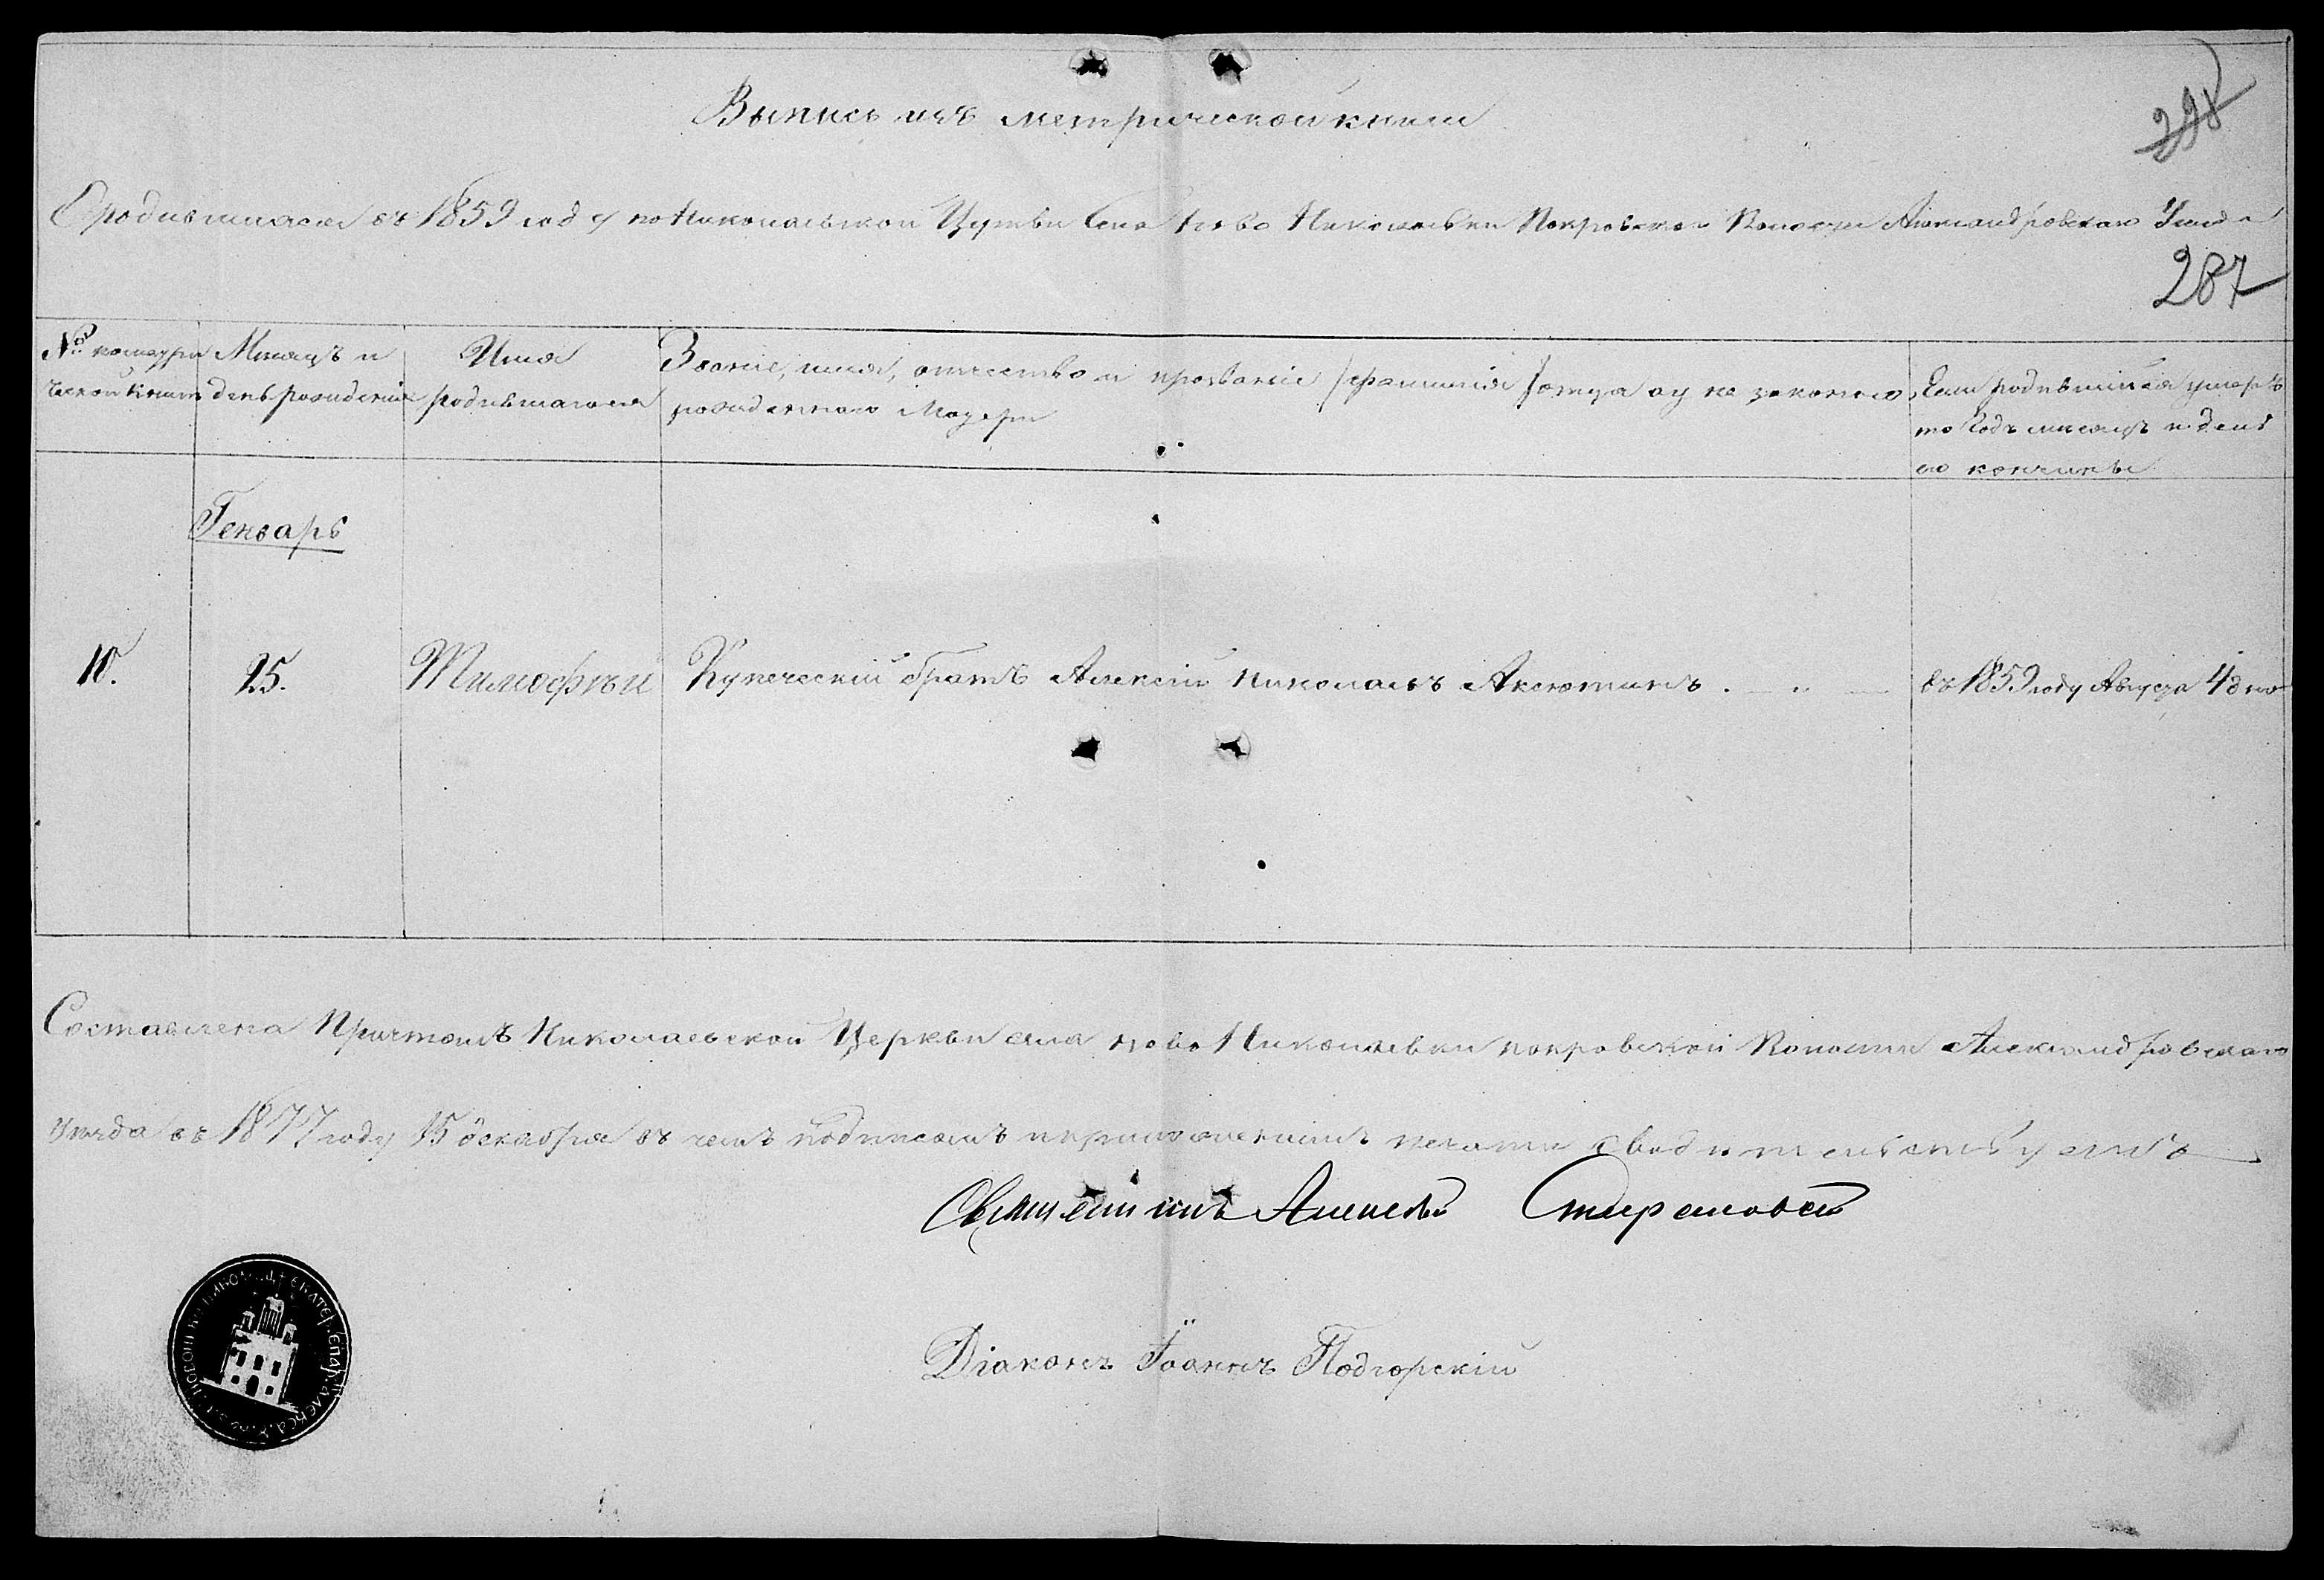 Выпись изъ метрической книги
298
О родившихся въ 1859 году по Николаевской Церкви Села Ново Николаевки Покровской Волости Александровскаго Уезда
287
№ по метри
ческой книги
Месяцъ и
день рождения
Имя
родившагося
Звание, имя, отчество и прозвание (фамилия) отца а у не законно
рожденнаго Матери
Если родившийся умеръ
то Годъ месяцъ и день
его кончины
Генварь
10.
25.
Тимофей
Купеческий братъ Алексий Николаевъ Аксютинъ.
въ 1859 году Августа 4 дня
Составлена Причтомъ Николаевской Церкви села ново Николаевки покровской Волости Александровскаго
Уезда въ 1877 году 15 декабря въ чемъ подписомъ и приложениемъ печати свидительствуемъ
Священникъ Алексей
Діаконъ Іоаннъ Подгорскій